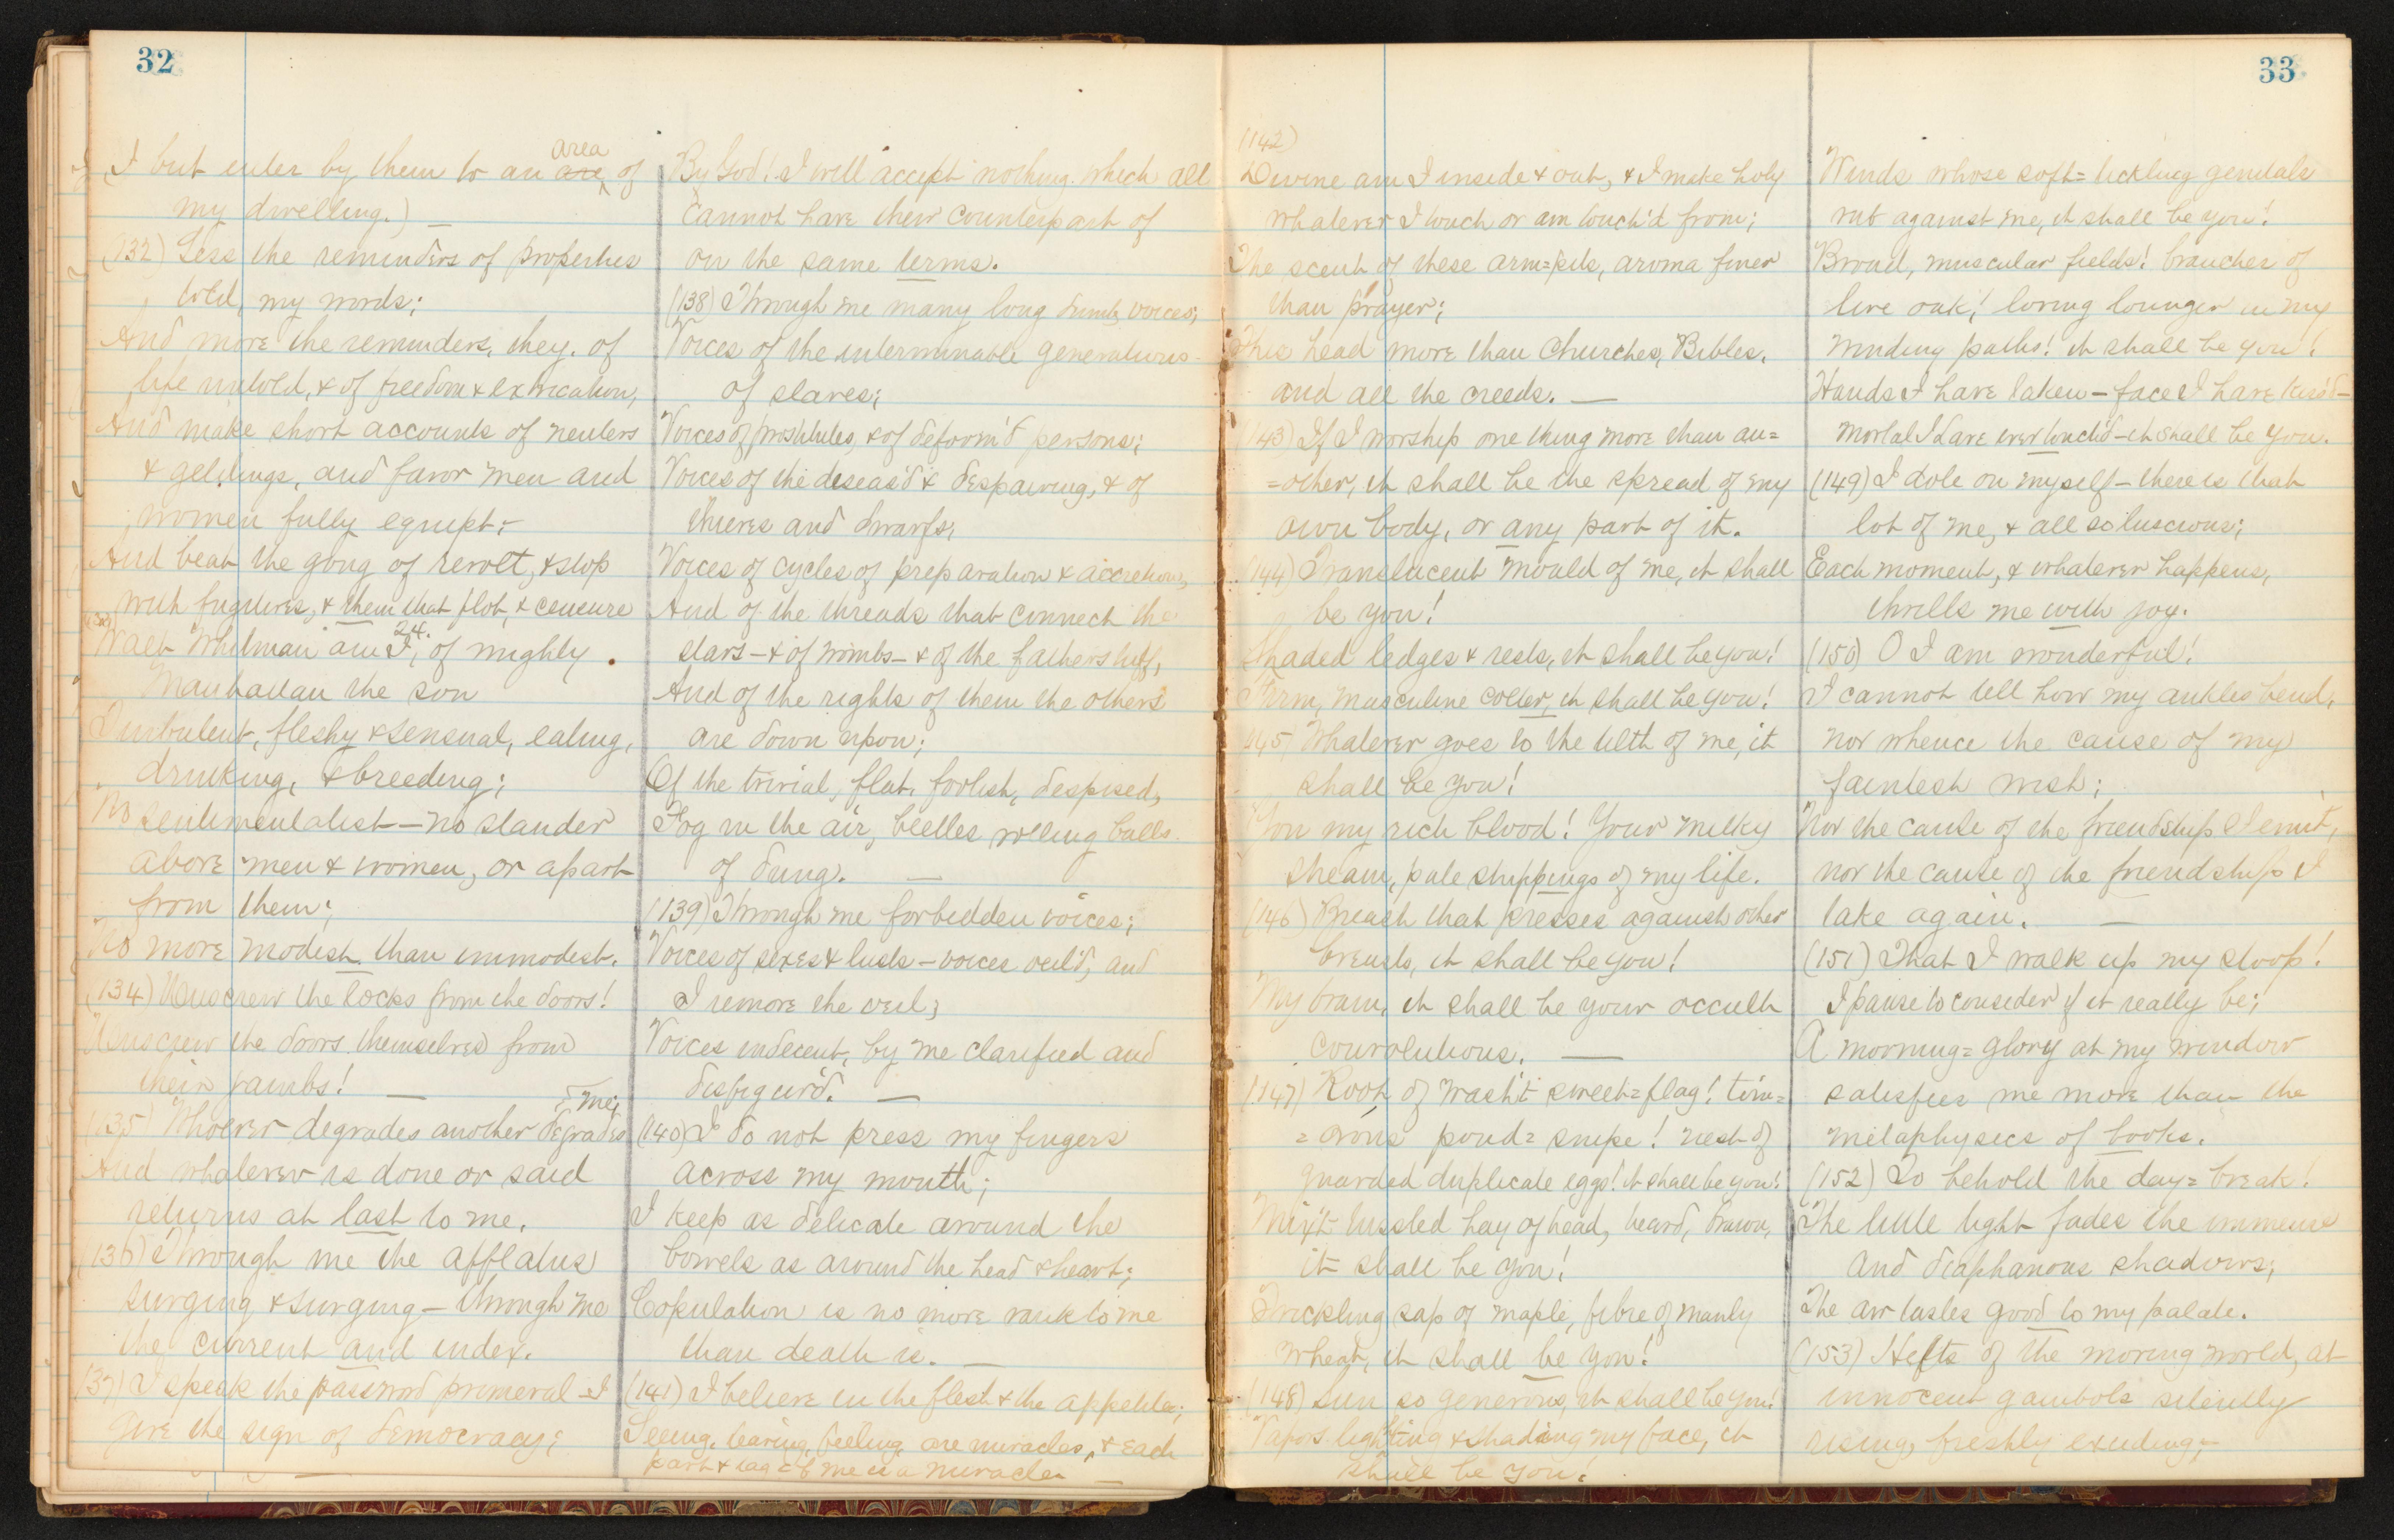 32
I but enter by them to an are area of
my dwelling.)
(132) Less the reminders of properties
told, my words;
And more the reminders, they, of
life untold, & of freedom & extrication,
And make short accounts of neuters
& geldings, and favor men and
women fully equipt;
And beat the gong of revolt, & stop
with fugitives, & them that plot & conspire
24.
Walt Whitman am I, of mighty
Manhattan the son
Turbulent, fleshy & sensual, eating,
drinking, & breeding;
No sentimentalist — no stander
above men & women, or apart
from them;
No more modest than immodest.
(134) Unscrew the locks from the doors!
Unscrew the doors themselves from
their jambs! —
(135) Whoever degrades another degrades me;
And whatever is done or said
returns at last to me.
(136) Through me the afflatus
surging & surging — through me
the current and index.
(137) I speak the password primeval — I
give the sign of democracy;
By God! I will accept nothing which all
cannot have their counterpart of
on the same terms.
(138) Through me many long dumb voices;
Voices of the interminable generations
of slaves;
Voices of prostitutes, & of deform'd persons;
Voices of the diseas'd & despairing, & of
thieves and dwarfs;
Voices of cycles of preparation & accretion,
And of the threads that connect the
stars — & of wombs — & of the fathers tuff,
And of the rights of them the others
are down upon;
Of the trivial, flat, foolish, despised,
Fog in the air, beetles rolling balls
of dung. —
(139) Through me forbidden voices;
Voices of sexes & lusts — voices veil'd, and
I remove the veil;
Voices indecent, by me clarified and
disfigur'd. —
(140) I do not press my fingers
across my mouth;
I keep as delicate around the
bowels as around the head & heart;
Copulation is no more rank to me
than death is. —
(141) I believe in the flesh & the appetites;
Seeing, hearing, feeling are miracles, & each
part & tag of me is a miracle. —
33
(142)
Divine am I inside & out, & I make holy
whatever I touch or am touch'd from;
The scent of these arm=pits, aroma finer
than prayer;
This head more than Churches, Bibles,
and all the creeds. —
(143) If I worship one thing more than an=
=other, it shall be the spread of my
own body, or any part of it.
(144) Translucent mould of me, it shall
be you!
Shaded ledges & rests, it shall be you!
Firm, masculine colter, it shall be you!
145) Whatever goes to the tilth of me, it
shall be you!
You my rich blood! Your milky
stream, pale strippings of my life.
(146) Breast that presses against other
breasts, it shall be you!
My brain, it shall be your occult
convolutions. —
(147) Root of wash't sweet=flag! tim=
=orous pond=snipe! nest of
guarded duplicate eggs! it shall be you!
Mix't tussled hay of head, beard, brawn,
it shall be you!
Trickling sap of maple, fibre of manly
wheat, it shall be you!
(148) Sun so generous, it shall be you!
Vapors lighting & shading my face, it
shall be you!
Winds whose soft=tickling genitals
rub against me, it shall be you!
Broad, muscular fields! branches of
live oak! loving lounger in my
winding paths! it shall be you!
Hands I have taken — face I have kiss'd —
mortal I have ever touch'd — it shall be you.
(149) I dote on myself — there is that
lot of me, & all so luscious;
Each moment, & whatever happens,
thrills me with joy.
(150) O I am wonderful!
I cannot tell how my ankles bend,
nor whence the cause of my
faintest wish;
Nor the cause of the friendship I emit,
nor the cause of the friendship I
take again. —
(151) That I walk up my stoop!
I pause to consider if it really be;
A morning=glory at my window
satisfies me more than the
metaphysics of books.
(152) To behold the day=break!
The little light fades the immense
and diaphanous shadows;
The air tastes good to my palate.
(153) Hefts of the moving world, at
innocent gambols silently
rising, freshly exuding;